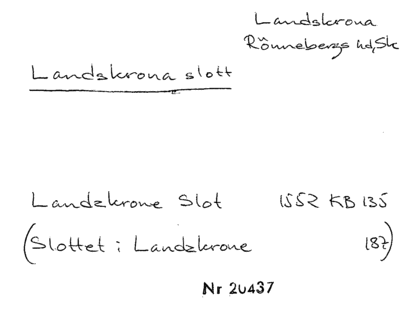 Landskrona
Rönnebergs hd, Sk
Landskrona slott
Landzkrone Slot 1552 KB 135
(Slottet i Landzkrone 187)
Nr 20437